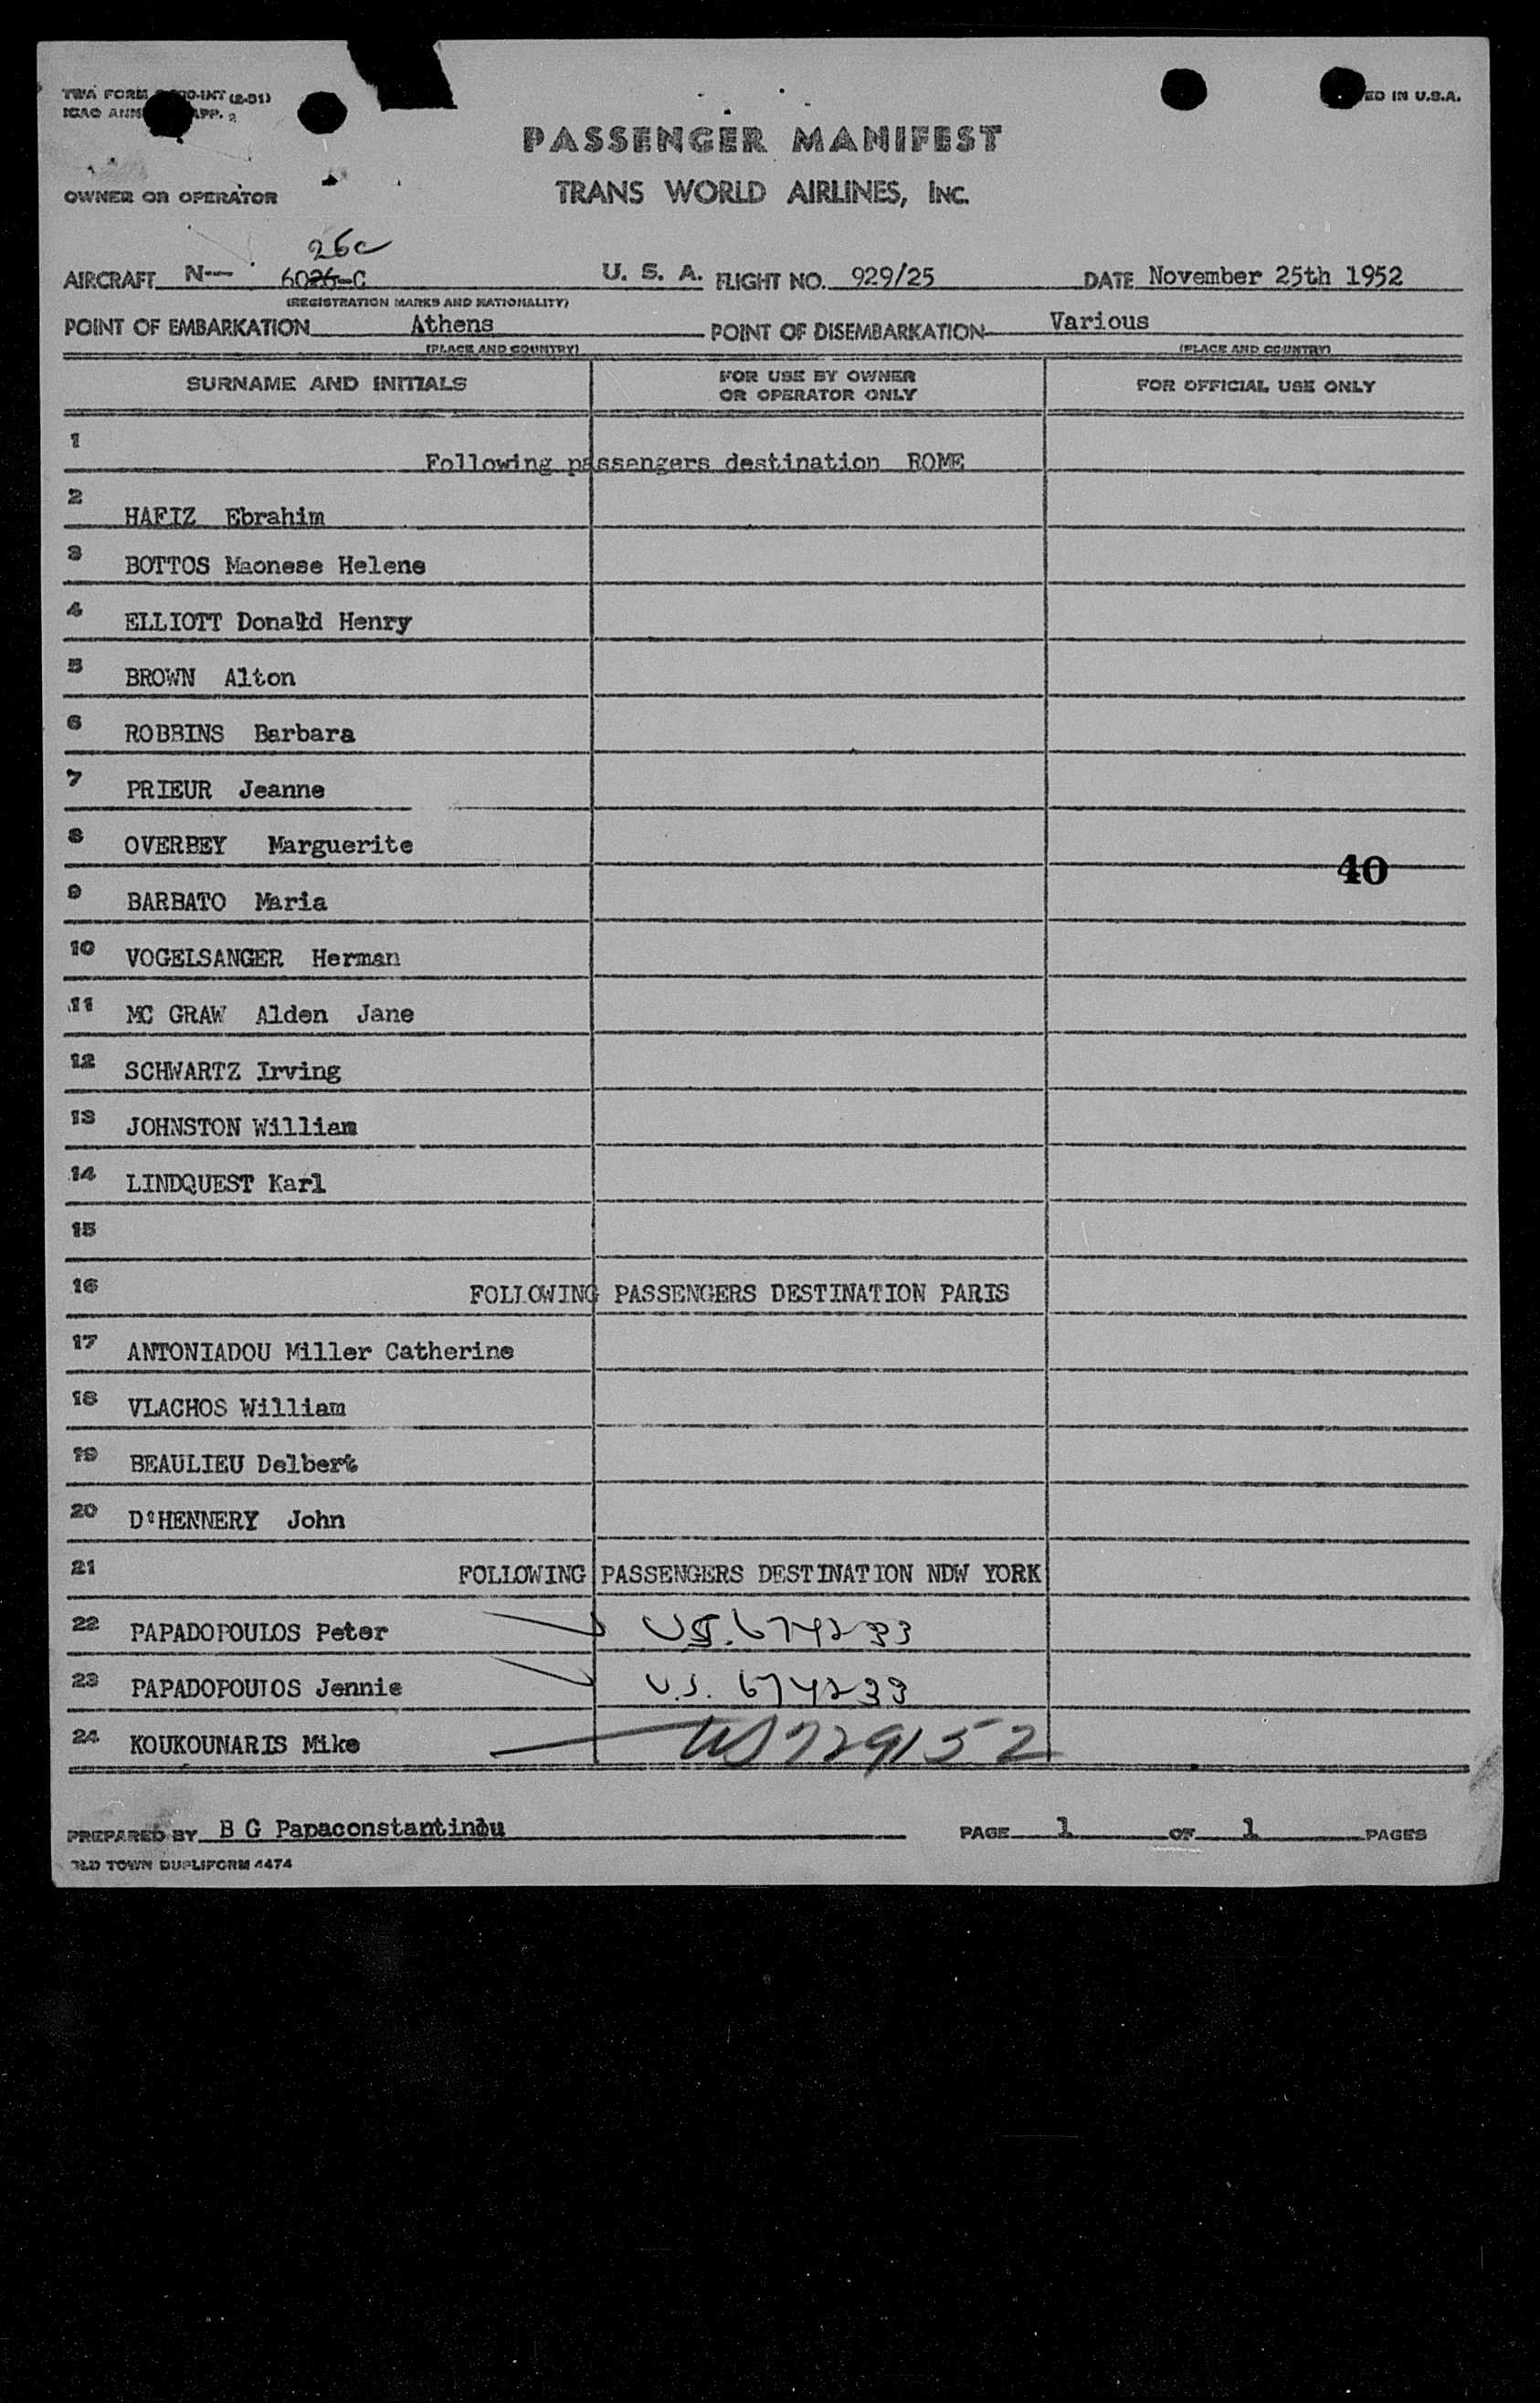 TWA FORM (2-51)
ICAO APP. 2
ED IN U.S.A.
PASSENGER MANIFEST
TRANS WORLD AIRLINES, INC.
OWNER OR OPERATOR
26c
AIRCRAFT N-- 6026-C U. S. A. FLIGHT NO. 929/25 DATE November 25th 1952
(REGISTRATION MARKS AND NATIONALITY)
POINT OF EMBARKATION Athens POINT OF DISEMBARKATION Various
(PLACE AND COUNTRY) (PLACE AND COUNTRY)
SURNAME AND INITIALS FOR USE BY OWNER OR OPERATOR ONLY FOR OFFICIAL USE ONLY
1 Following passengers destination ROME
2 HAFIZ Ebrahim
3 BOTTOS Maonese Helene
4 ELLIOTT Donald Henry
5 BROWN Alton
6 ROBBINS Barbara
7 PRIEUR Jeanne
8 OVERBEY Marguerite
40
9 BARBATO Maria
10 VOGELSANGER Herman
11 MC GRAW Alden Jane
12 SCHWARTZ Irving
13 JOHNSTON William
14 LINDQUEST Karl
15
16 FOLLOWING PASSENGERS DESTINATION PARIS
17 ANTONIADOU Miller Catherine
18 VLACHOS William
19 BEAULIEU Delbert
20 D'HENNERY John
21 FOLLOWING PASSENGERS DESTINATION NDW YORK
22 PAPADOPOULOS Peter US. 674233
23 PAPADOPOULOS Jennie U.S. 674233
24 KOUKOUNARIS Mike US 729152
PREPARED BY B G Papaconstantinou PAGE 1 OF 1 PAGES
OLD TOWN DUPLIFORM 4474